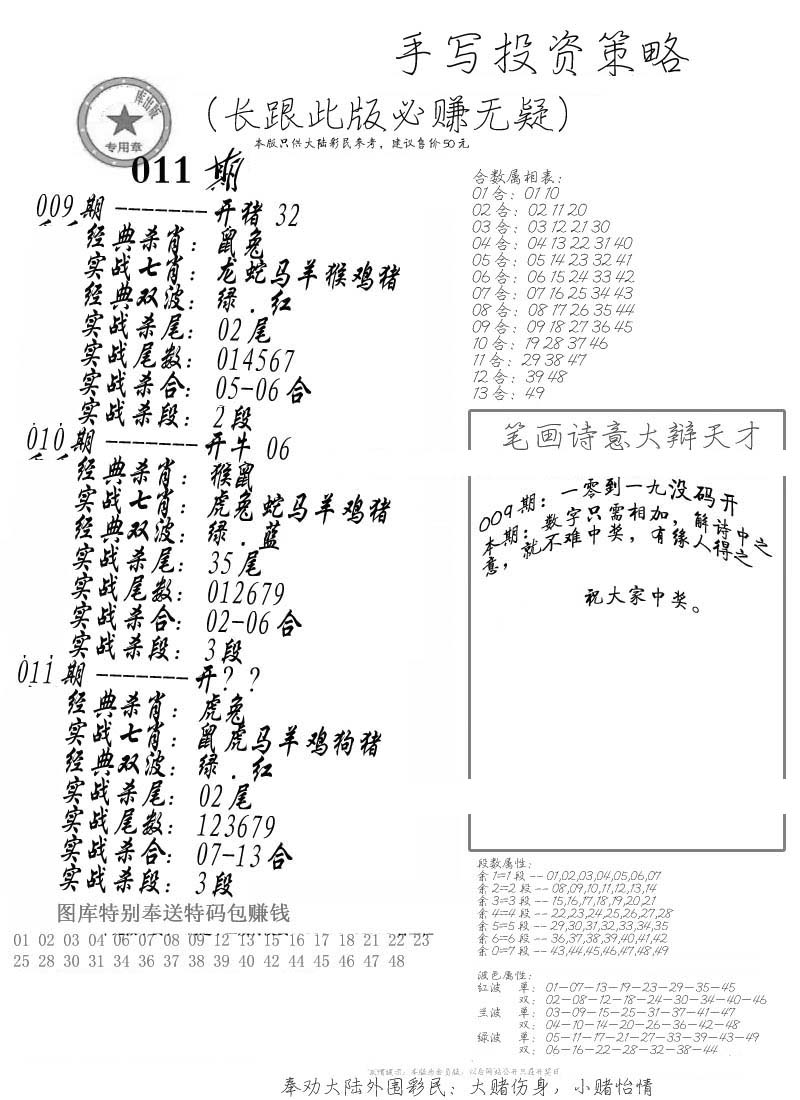 手写投资策略
(长跟此版必赚无疑)
库出版
专用章
本版只供大陆彩民参考,建议售价50元
011 期
009期 ------- 开猪 32
经典杀肖: 鼠兔
实战七肖: 龙蛇马羊猴鸡猪
经典双波: 绿.红
实战杀尾: 02尾
实战尾数: 014567
实战杀合: 05-06合
实战杀段: 2段
010期 ------- 开牛 06
经典杀肖: 猴鼠
实战七肖: 虎兔蛇马羊鸡猪
经典双波: 绿.蓝
实战杀尾: 35尾
实战尾数: 012679
实战杀合: 02-06合
实战杀段: 3段
011期 ------- 开??
经典杀肖: 虎兔
实战七肖: 鼠虎马羊鸡狗猪
经典双波: 绿.红
实战杀尾: 02尾
实战尾数: 123679
实战杀合: 07-13合
实战杀段: 3段
图库特别奉送特码包赚钱
01 02 03 04 06 07 08 09 12 13 15 16 17 18 21 22 23
25 28 30 31 34 36 37 38 39 40 42 44 45 46 47 48
合数属相表:
01合: 01 10
02合: 02 11 20
03合: 03 12 21 30
04合: 04 13 22 31 40
05合: 05 14 23 32 41
06合: 06 15 24 33 42
07合: 07 16 25 34 43
08合: 08 17 26 35 44
09合: 09 18 27 36 45
10合: 19 28 37 46
11合: 29 38 47
12合: 39 48
13合: 49
笔画诗意大辩天才
009期: 一零到一九没码开
本期: 数字只需相加, 解诗中之
意, 就不难中奖, 有缘人得之
祝大家中奖。
段数属性:
余1=1段--01,02,03,04,05,06,07
余2=2段--08,09,10,11,12,13,14
余3=3段--15,16,17,18,19,20,21
余4=4段--22,23,24,25,26,27,28
余5=5段--29,30,31,32,33,34,35
余6=6段--36,37,38,39,40,41,42
余0=7段--43,44,45,46,47,48,49
波色属性:
红波 单: 01-07-13-19-23-29-35-45
双: 02-08-12-18-24-30-34-40-46
兰波 单: 03-09-15-25-31-37-41-47
双: 04-10-14-20-26-36-42-48
绿波 单: 05-11-17-21-27-33-39-43-49
双: 06-16-22-28-32-38-44
友情提示: 本版为会员版, 以后网站公开只在开奖日
奉劝大陆外围彩民: 大赌伤身, 小赌怡情